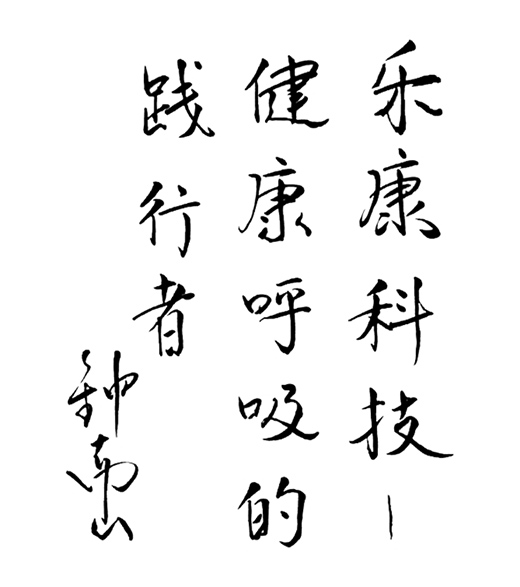 乐康科技—
健康呼吸的
践行者
钟南山